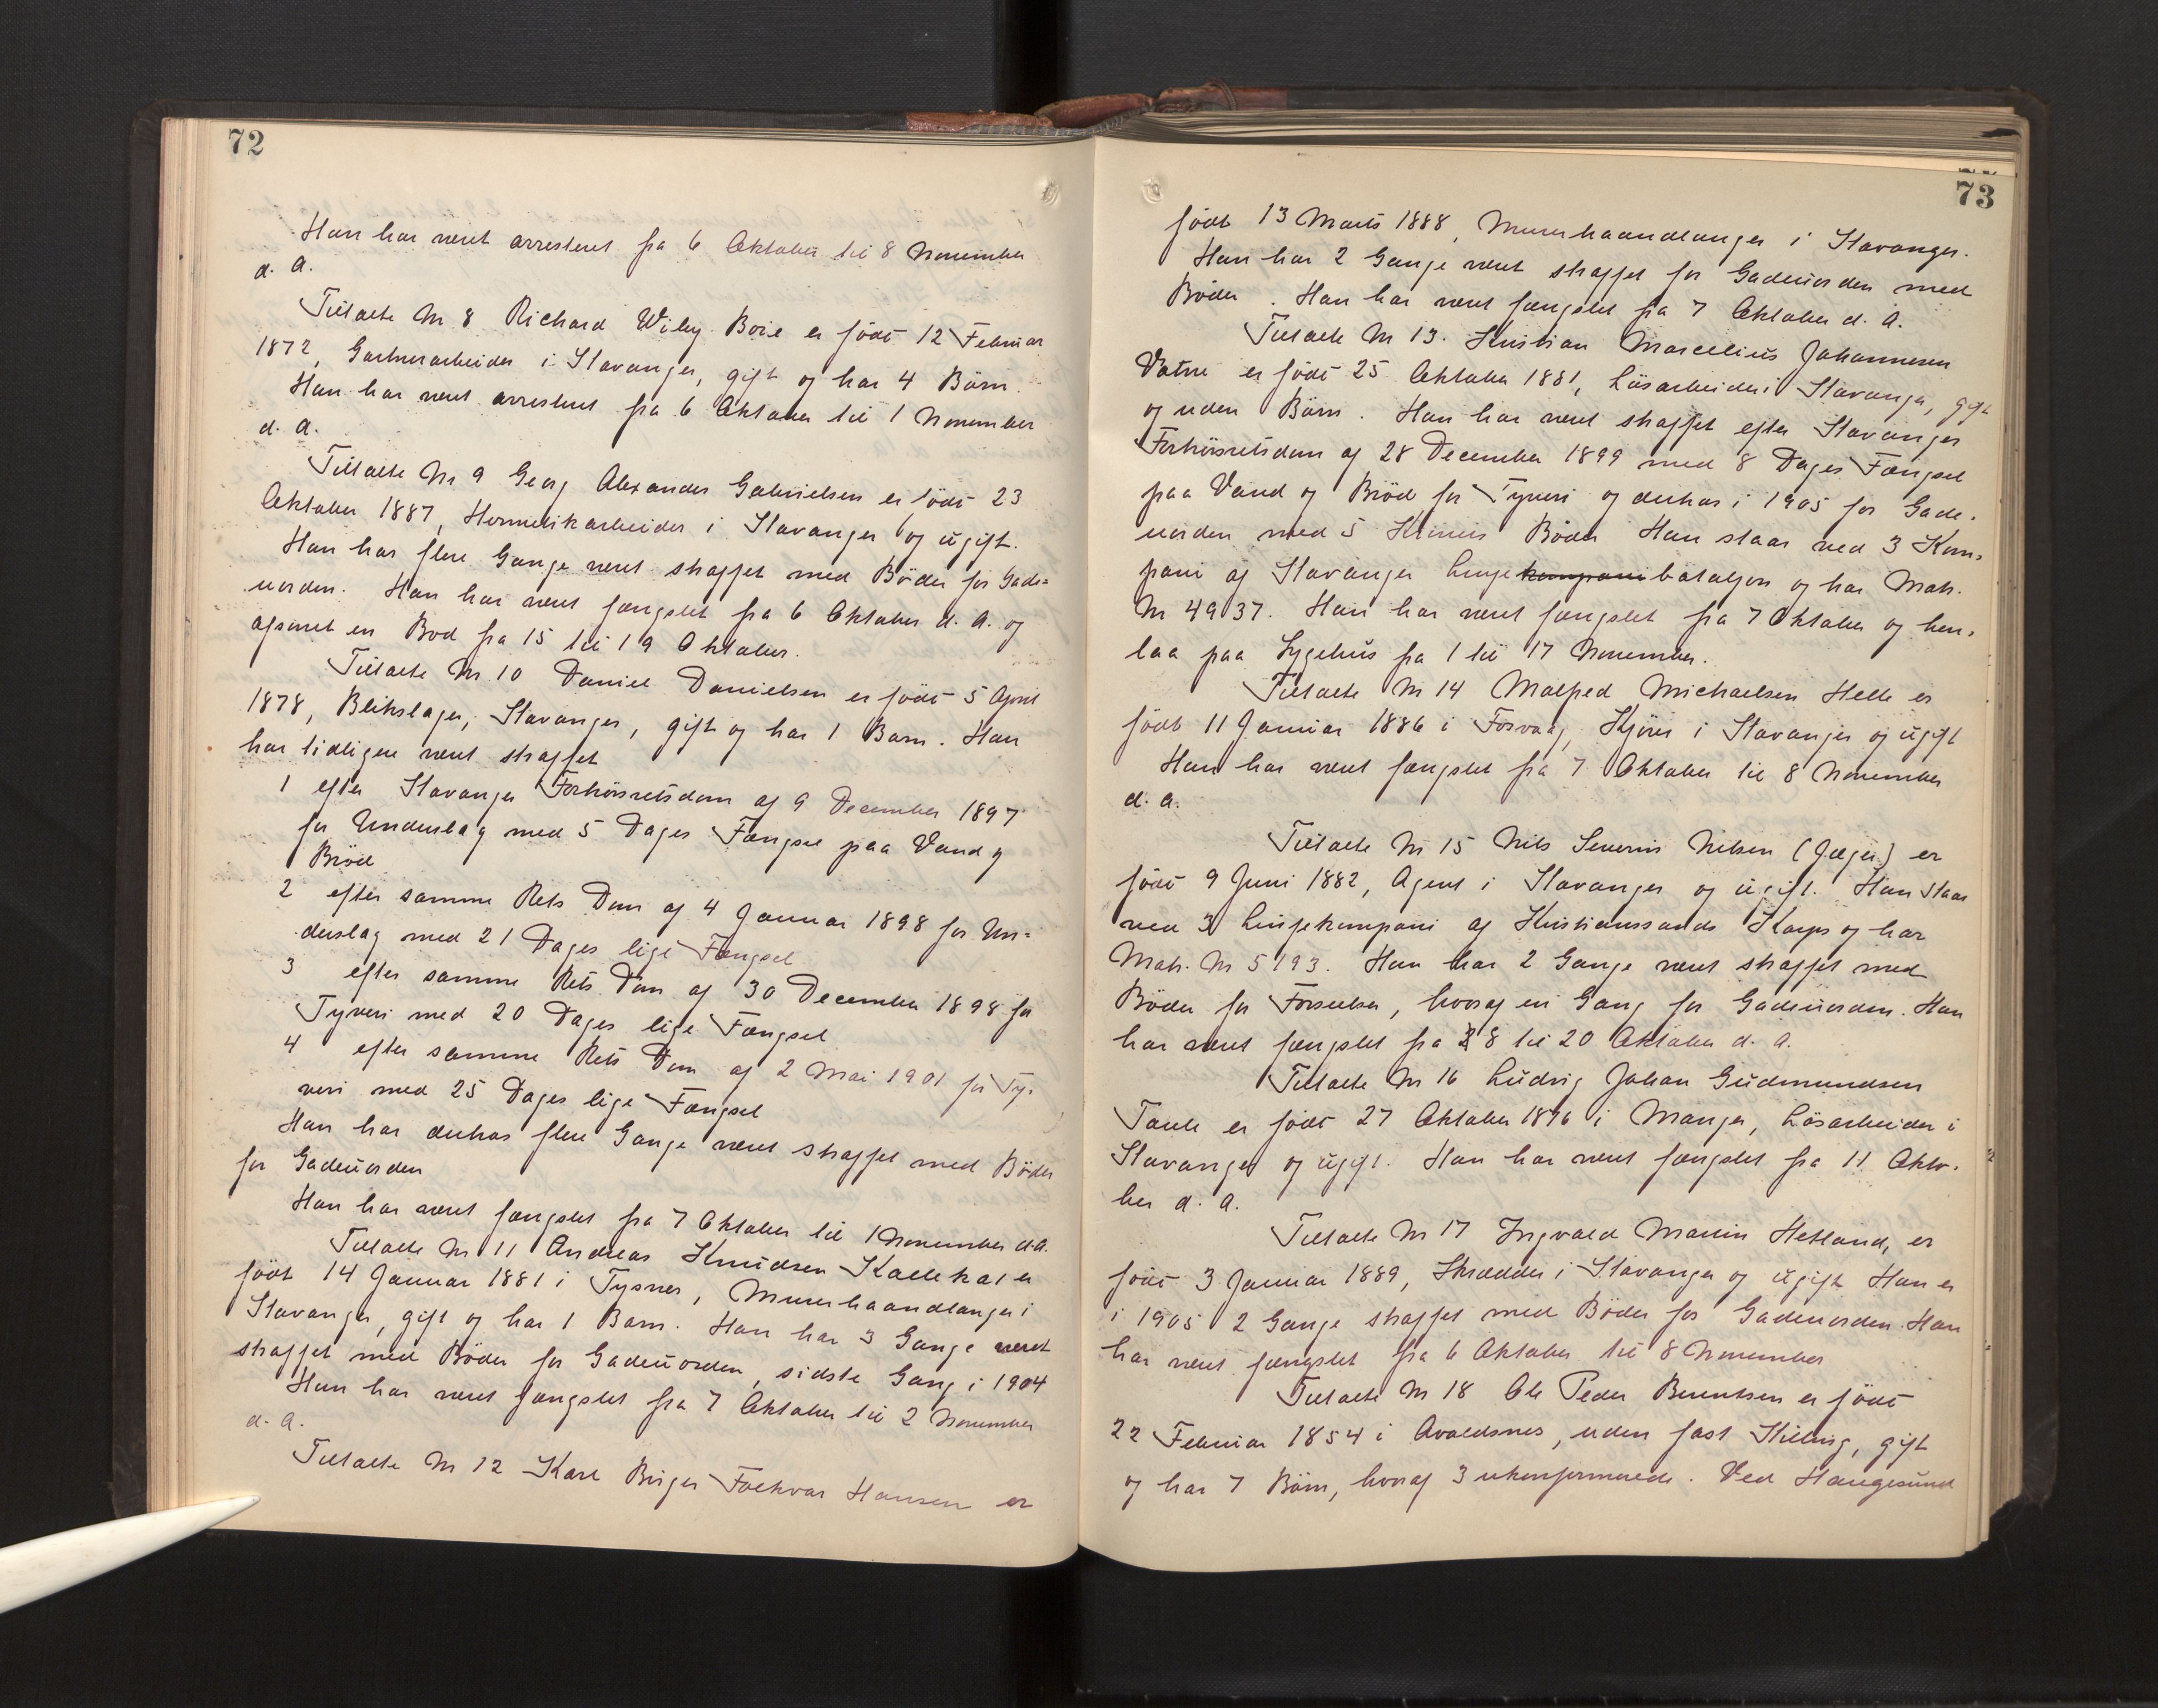 72
Han har været arresteret fra 6 Oktober til 8 November
d. A.
Tiltalte Nr 8 Richard Wiley Boie er födt 12 Februar
1872, Gartnerarbeider i Stavanger, gift og har 4 Börn.
Han har været arresteret fra 6 Oktober til 1 November
d. A.
Tiltalte Nr 9 Georg Alexander Gabrielsen er födt 23
Oktober 1887, Hermetikarbeider i Stavanger og ugift.
Han har flere Gange været straffet med Böder for Gade=
uorden. Han har været fængslet fra 6 Oktober d. A. og
afsonet en Bod fra 15 til 19 Oktober.
Tiltalte Nr 10 Daniel Danielsen er födt 5 April
1878, Blikslager, Stavanger, gift og har 1 Barn. Han
har tidligere været straffet
1 efter Stavanger Forhörsretsdom af 9 December 1897
for Underslag med 5 Dages Fængsel paa Vand og
Bröd
2 efter samme Rets Dom af 4 Januar 1898 for Un=
derslag med 21 Dages lige Fængsel
3 efter samme Rets Dom af 30 December 1898 for
Tyveri med 20 Dages lige Fængsel
4 efter samme Rets Dom af 2 Mai 1901 for Ty-
veri med 25 Dages lige Fængsel
Han har derhos flere Gange været straffet med Böder
for Gadeuorden
Han har været fængslet fra 7 Oktober til 1 November d. A.
Tiltalte Nr 11 Andreas Knudsen Kallekat er
födt 14 Januar 1881 i Tysnes, Murerhaandlanger i
Stavanger, gift og har 1 Barn. Han har 3 Gange været
straffet med Böder for Gadeuorden, sidste Gang i 1904
Han har været fængslet fra 7 Oktober til 2 November
d. A.
Tiltalte Nr 12 Karl Birger Folkvar Hansen er
73
födt 13 Marts 1888, Murerhaandlanger i Stavanger.
Han har 2 Gange været straffet for Gadeuorden med
Böder. Han har været fængslet fra 7 Oktober d. A.
Tiltalte Nr 13. Kristian Marcelius Johannesen
Vatne er födt 25 Oktober 1881, Lösarbeider i Stavanger, gift
og uden Börn. Han har været straffet efter Stavanger
Forhörsretsdom af 28 December 1899 med 8 Dages Fængsel
paa Vand og Bröd for Tyveri og derhos i 1905 for Gade-
uorden med 5 Kroners Böder Han staar ved 3 Kom=
pani af Stavanger Linjekompani bataljon og har Matr.
Nr 4937. Han har været fængslet fra 7 Oktober og hen-
laa paa Sygehus fra 1 til 17 November.
Tiltalte Nr 14 Malfred Michaelsen Helle er
födt 11 Januar 1886 i Fosvaag, Kjörer i Stavanger og ugift
Han har været fængslet fra 7 Oktober til 8 November
d. A.
Tiltalte Nr 15 Nils Severin Nilsen (Jæger) er
födt 9 Juni 1882, Agent i Stavanger og ugift. Han staar
ved 3 Linjekompani af Kristianssands Korps og har
Matr. Nr 5193. Han har 2 Gange været straffet med
Böder for Forseelser, hvoraf en Gang for Gadeuorden. Han
har været fængslet fra 8 til 20 Oktober d. A.
Tiltalte Nr 16 Ludvig Johan Gudmundsen
Taule er födt 27 Oktober 1876 i Manger, Lösarbeider i
Stavanger og ugift. Han har været fængslet fra 11 Okto-
ber d. A.
Tiltalte Nr 17 Ingvald Martin Hetland, er
födt 3 Januar 1889, Skrædder i Stavanger og ugift Han er
i 1905 2 Gange straffet med Böder for Gadeuorden. Han
har været fængslet fra 6 Oktober til 8 November
Tiltalte Nr 18 Ole Peder Berentsen er födt
22 Februar 1854 i Avaldsnes, uden fast Stilling, gift
og har 7 Börn, hvoraf 3 ukonfirmerede. Ved Haugesund